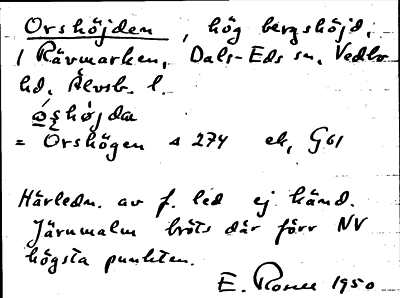 Orshöjden, hög bergshöjd,
i Rävmarken, Dals-Eds sn, Vedbo
hd, Älvsb. l.
= Örshögen ▵ 274 ek, G61
Härledn. av f. led ej känd.
Järnmalm bröts där förr NV
högsta punkten.
E. Rosell 1950